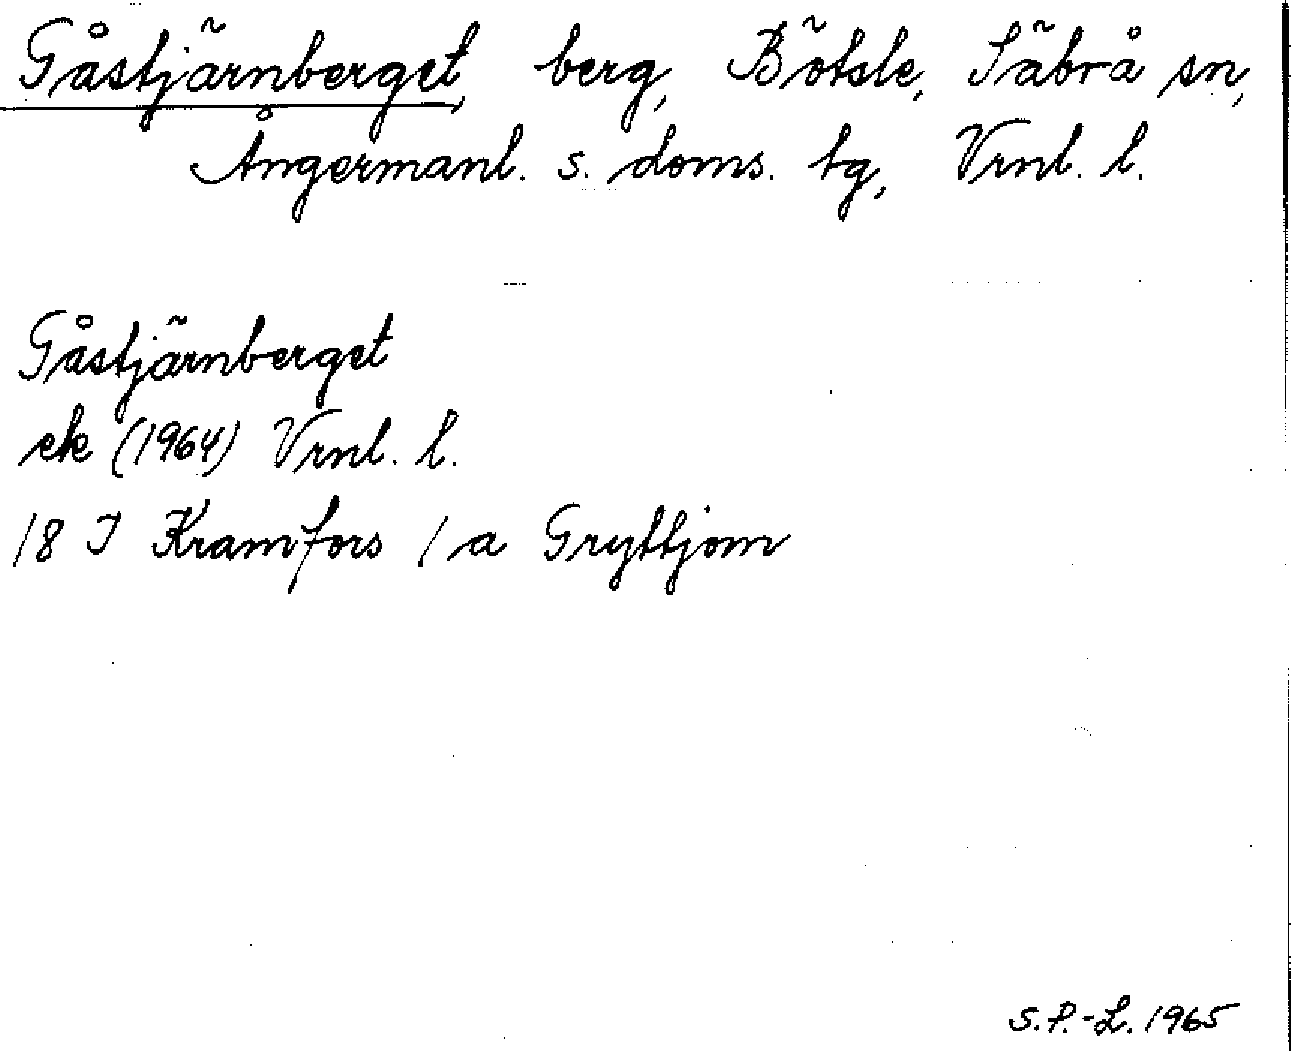 Gåstjärnberget, berg, Bötsle, Säbrå sn,
Ångermanl. s. doms. tg, Vrnl. l.
Gåstjärnberget
ek (1964) Vrnl. l.
18 I Kramfors 1 a Gryttjom
S.P.-L. 1965